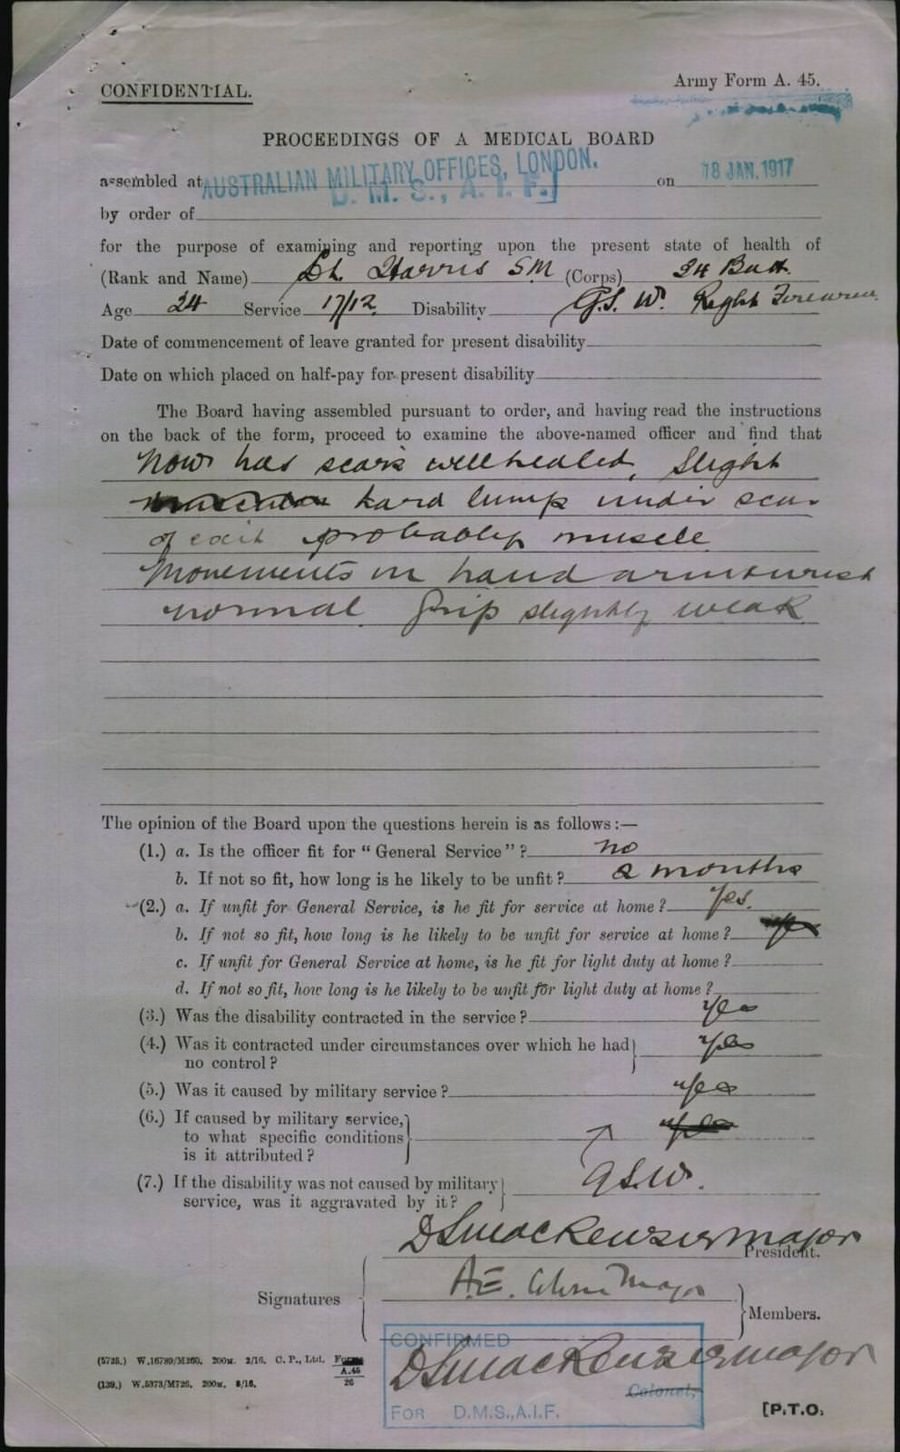 CONFIDENTIAL.
Army Form A. 45.
PROCEEDINGS OF A MEDICAL BOARD
assembled at AUSTRALIAN MILITARY OFFICES, LONDON. on 18 JAN. 1917
D. M. S., A. I. F.
by order of
for the purpose of examining and reporting upon the present state of health of
(Rank and Name) Lt Harris SM (Corps) 34 Batt.
Age 24 Service 17/12 Disability G.S. W. Right Forearm
Date of commencement of leave granted for present disability
Date on which placed on half-pay for present disability
The Board having assembled pursuant to order, and having read the instructions
on the back of the form, proceed to examine the above-named officer and find that
Now has scars well healed, Slight
hard lump under scar
of exit probably muscle
Movements in hand arm & wrist
normal. Grip slightly weak
The opinion of the Board upon the questions herein is as follows:—
(1.) a. Is the officer fit for “General Service”? no
b. If not so fit, how long is he likely to be unfit? 2 months
(2.) a. If unfit for General Service, is he fit for service at home? Yes.
b. If not so fit, how long is he likely to be unfit for service at home? yes
c. If unfit for General Service at home, is he fit for light duty at home?
d. If not so fit, how long is he likely to be unfit for light duty at home?
(3.) Was the disability contracted in the service? yes
(4.) Was it contracted under circumstances over which he had
no control? yes
(5.) Was it caused by military service? yes
(6.) If caused by military service,
to what specific conditions yes
is it attributed?
(7.) If the disability was not caused by military G.S.W.
service, was it aggravated by it?
DS MacKenzie Major
President.
A.E. Major
Signatures
Members.
CONFIRMED
DS MacKenzie Major
Colonel,
FOR D.M.S., A.I.F.
(5725.) W.16789/M260. 200M. 2/16. C. P., Ltd. Forms
A.45
(139.) W.5373/M726. 200M. 8/16. 26
[P.T.O.